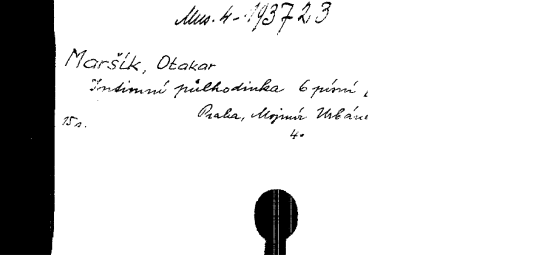 Mus. 4-193723
Maršík, Otakar
Intimní půlhodinka 6 písní
Praha, Mojmír Urbáne
15 s.
4°